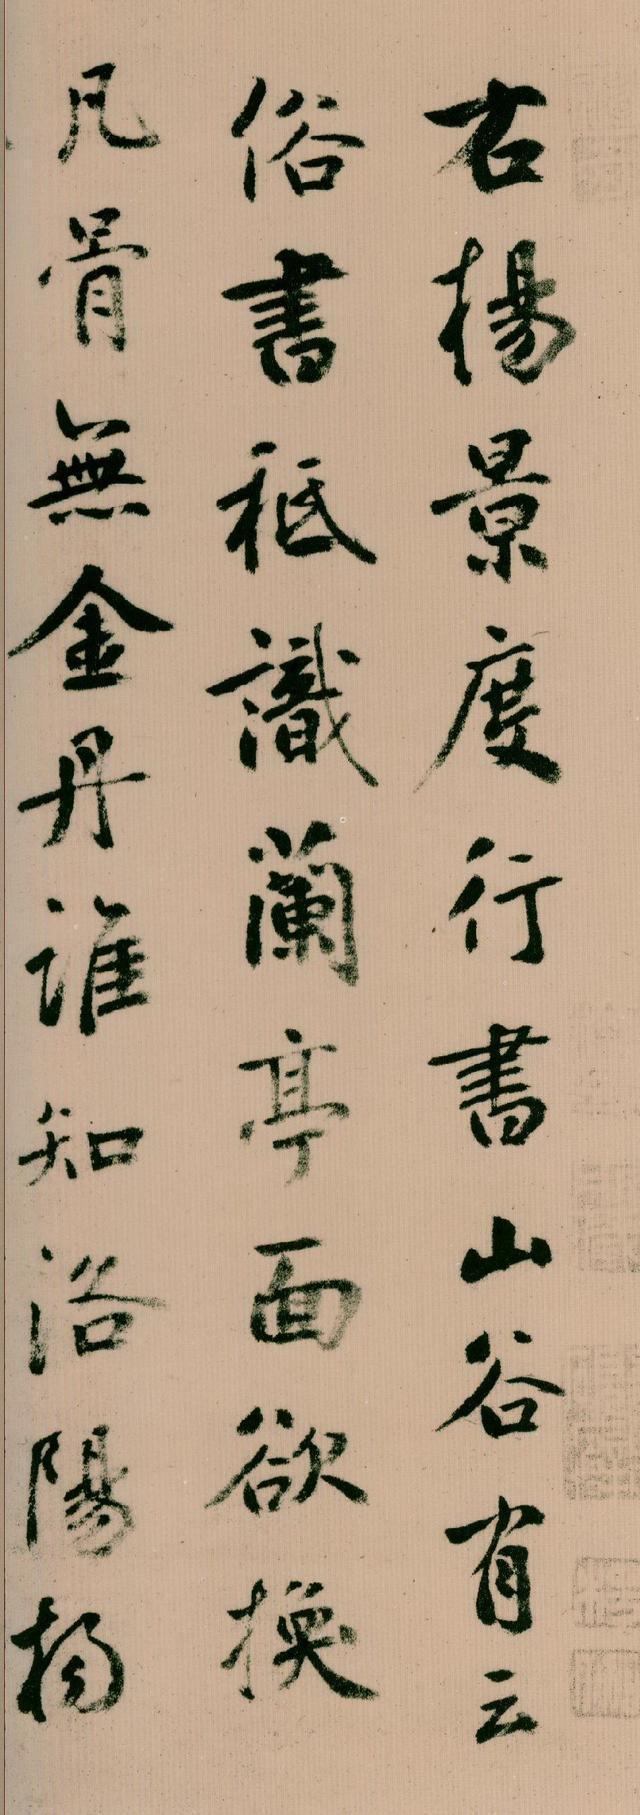 右楊景度行書山谷有云
俗書秖識蘭亭面欲換
凡骨無金丹誰知洛陽楊